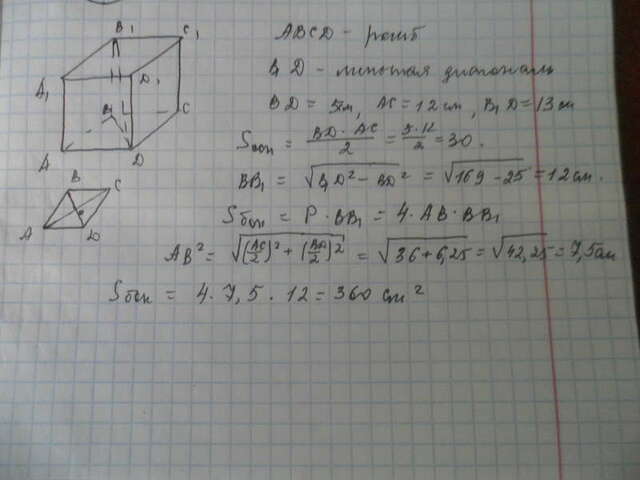 B₁ C₁
A₁ D₁
B C
A D
B C
A D
ABCD - ромб
B₁D - меньшая диагональ
BD = 5см, AC = 12 см, B₁D = 13 см
Sосн = BD · AC / 2 = 5·12 / 2 = 30.
BB₁ = √B₁D² - BD² = √169 - 25 = 12 см.
Sбок = P · BB₁ = 4 · AB · BB₁
AB² = √(AC/2)² + (BD/2)² = √36 + 6,25 = √42,25 = 7,5 см
Sбок = 4 · 7,5 · 12 = 360 см²